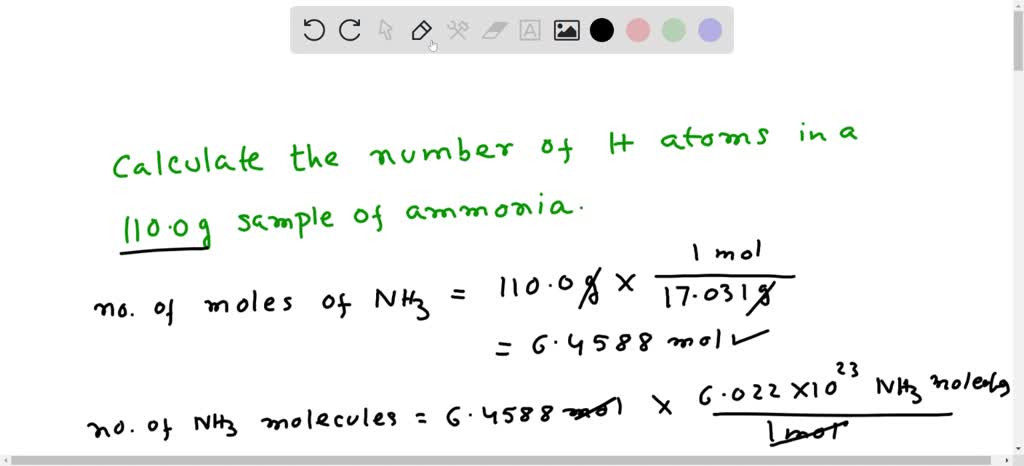 Calculate the number of H atoms in a
110.0g sample of ammonia.
no. of moles of NH3 = 110.0g × 1 mol / 17.031g
= 6.4588 mol ✓
no. of NH3 molecules = 6.4588 mol × 6.022 ×10^23 NH3 / 1 mol